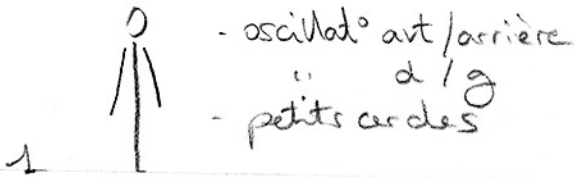 - oscillat° avt/arrière
" d/g
- petits cercles
1